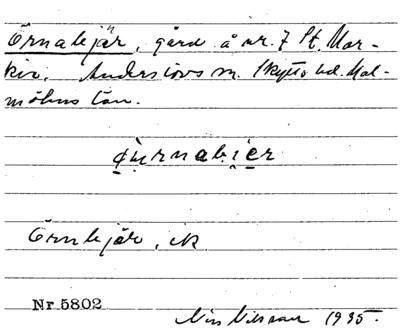 Örnabjär, gård å nr. 7 St. Mar-
kie. Anderslövs sn. Skytts hd. Mal-
möhus län.
Örnbjär, ik
Nr 5802
Nils Nilsson 1935.